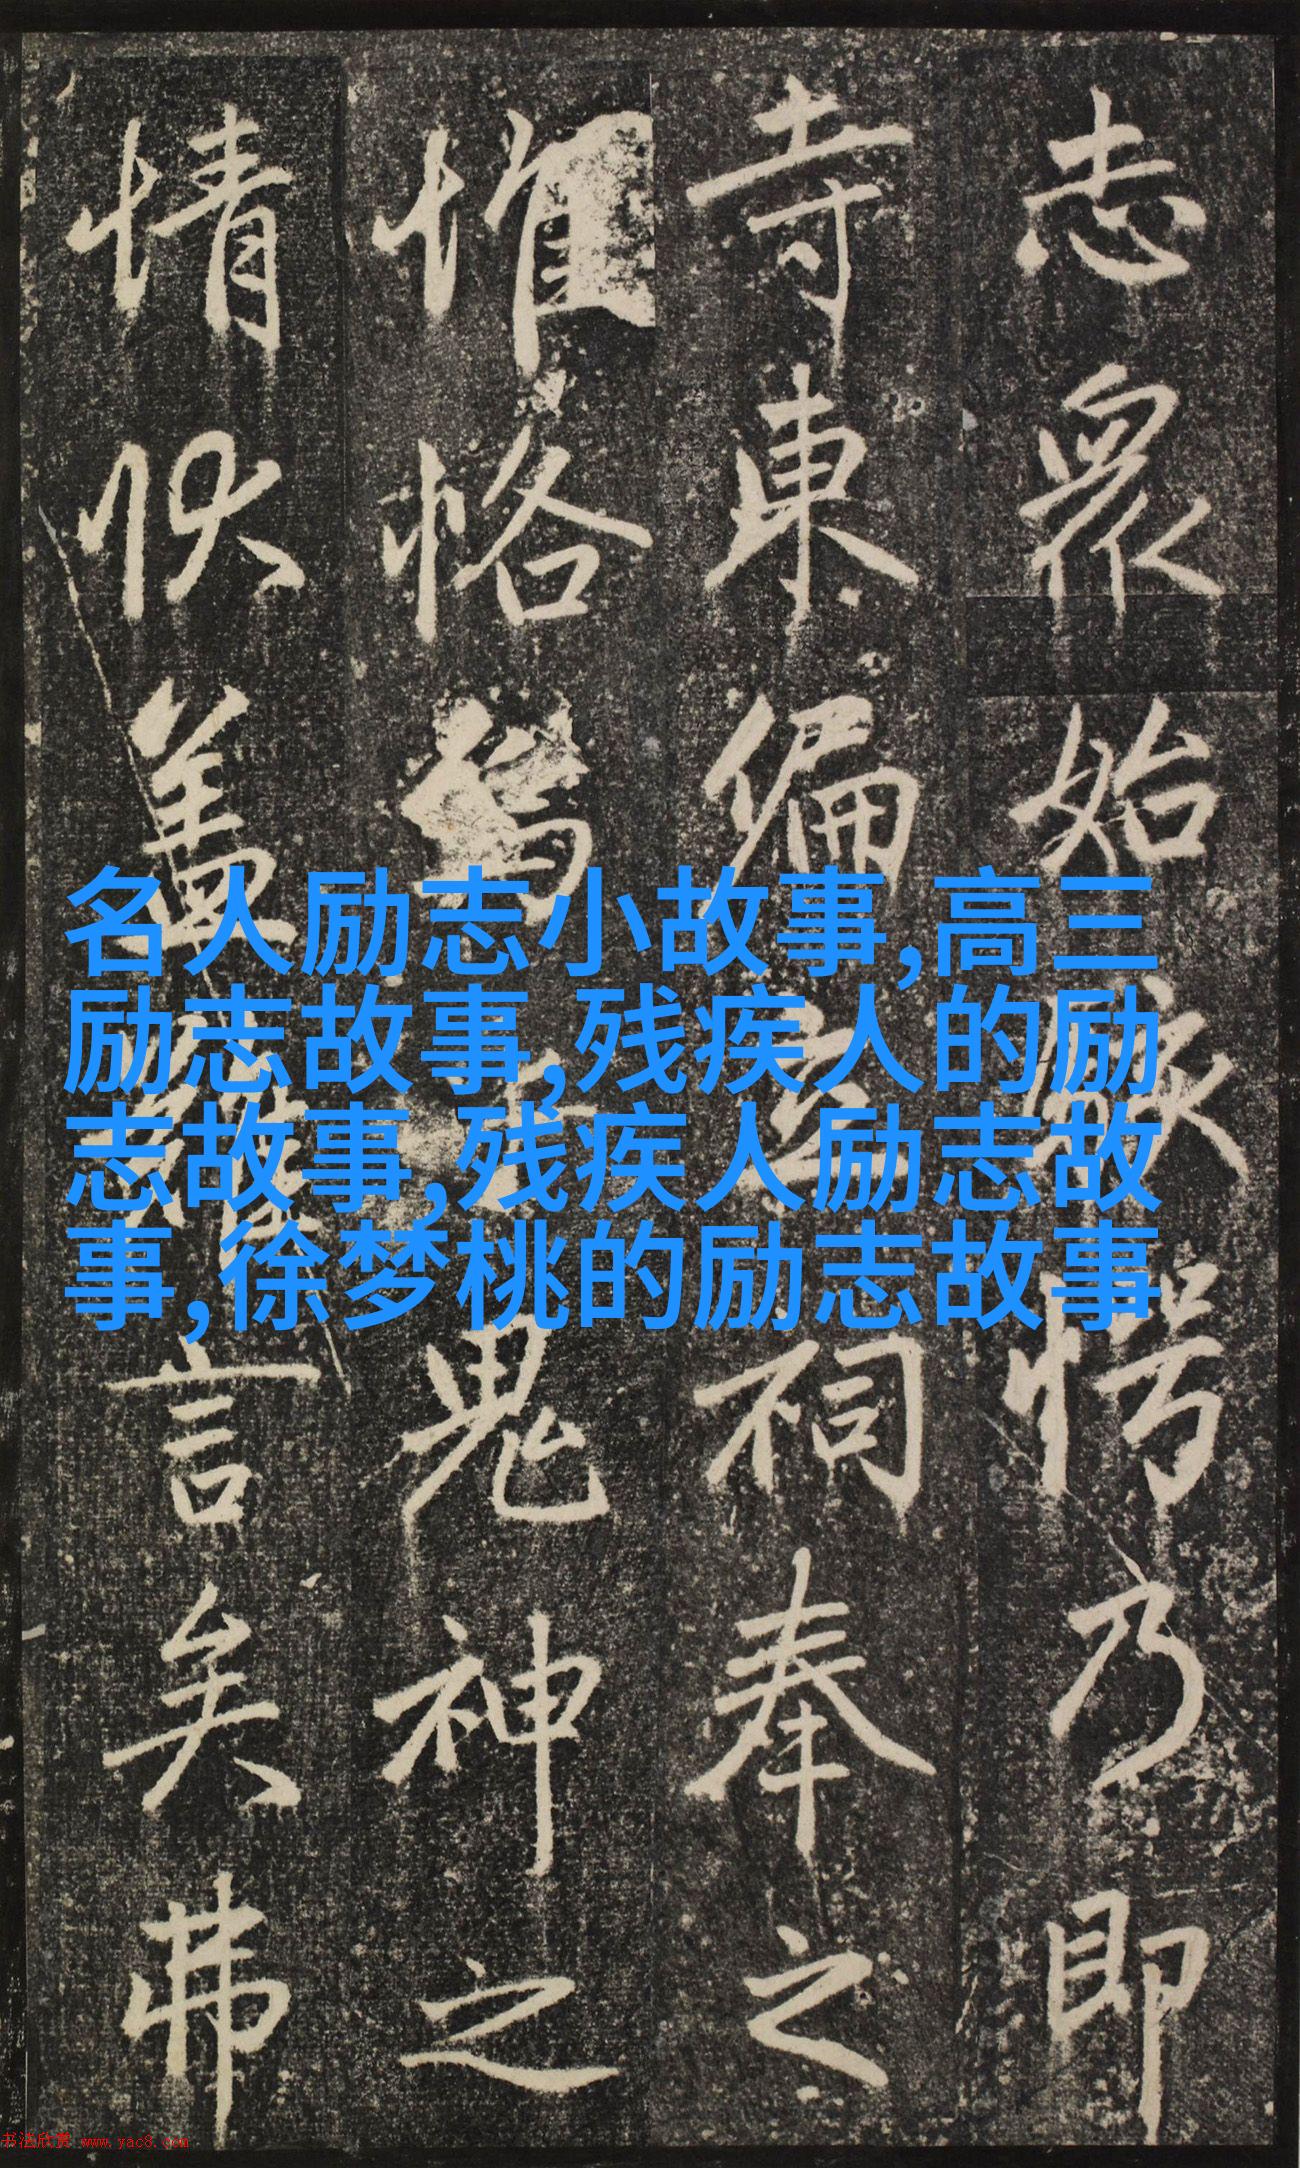 志衆始駭愕乃即
寺東偏祠奉之
恪為鬼神之
情狀蓋難言矣弗
名人励志小故事,高三
励志故事,残疾人的励
志故事,残疾人励志故
事,徐梦桃的励志故事
书法欣赏 www.yac8.com